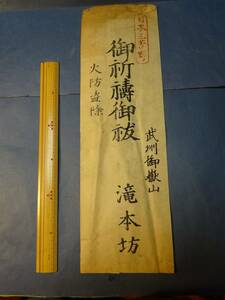 武州御嶽山
滝本坊
御祈禱御祓
火防盗除